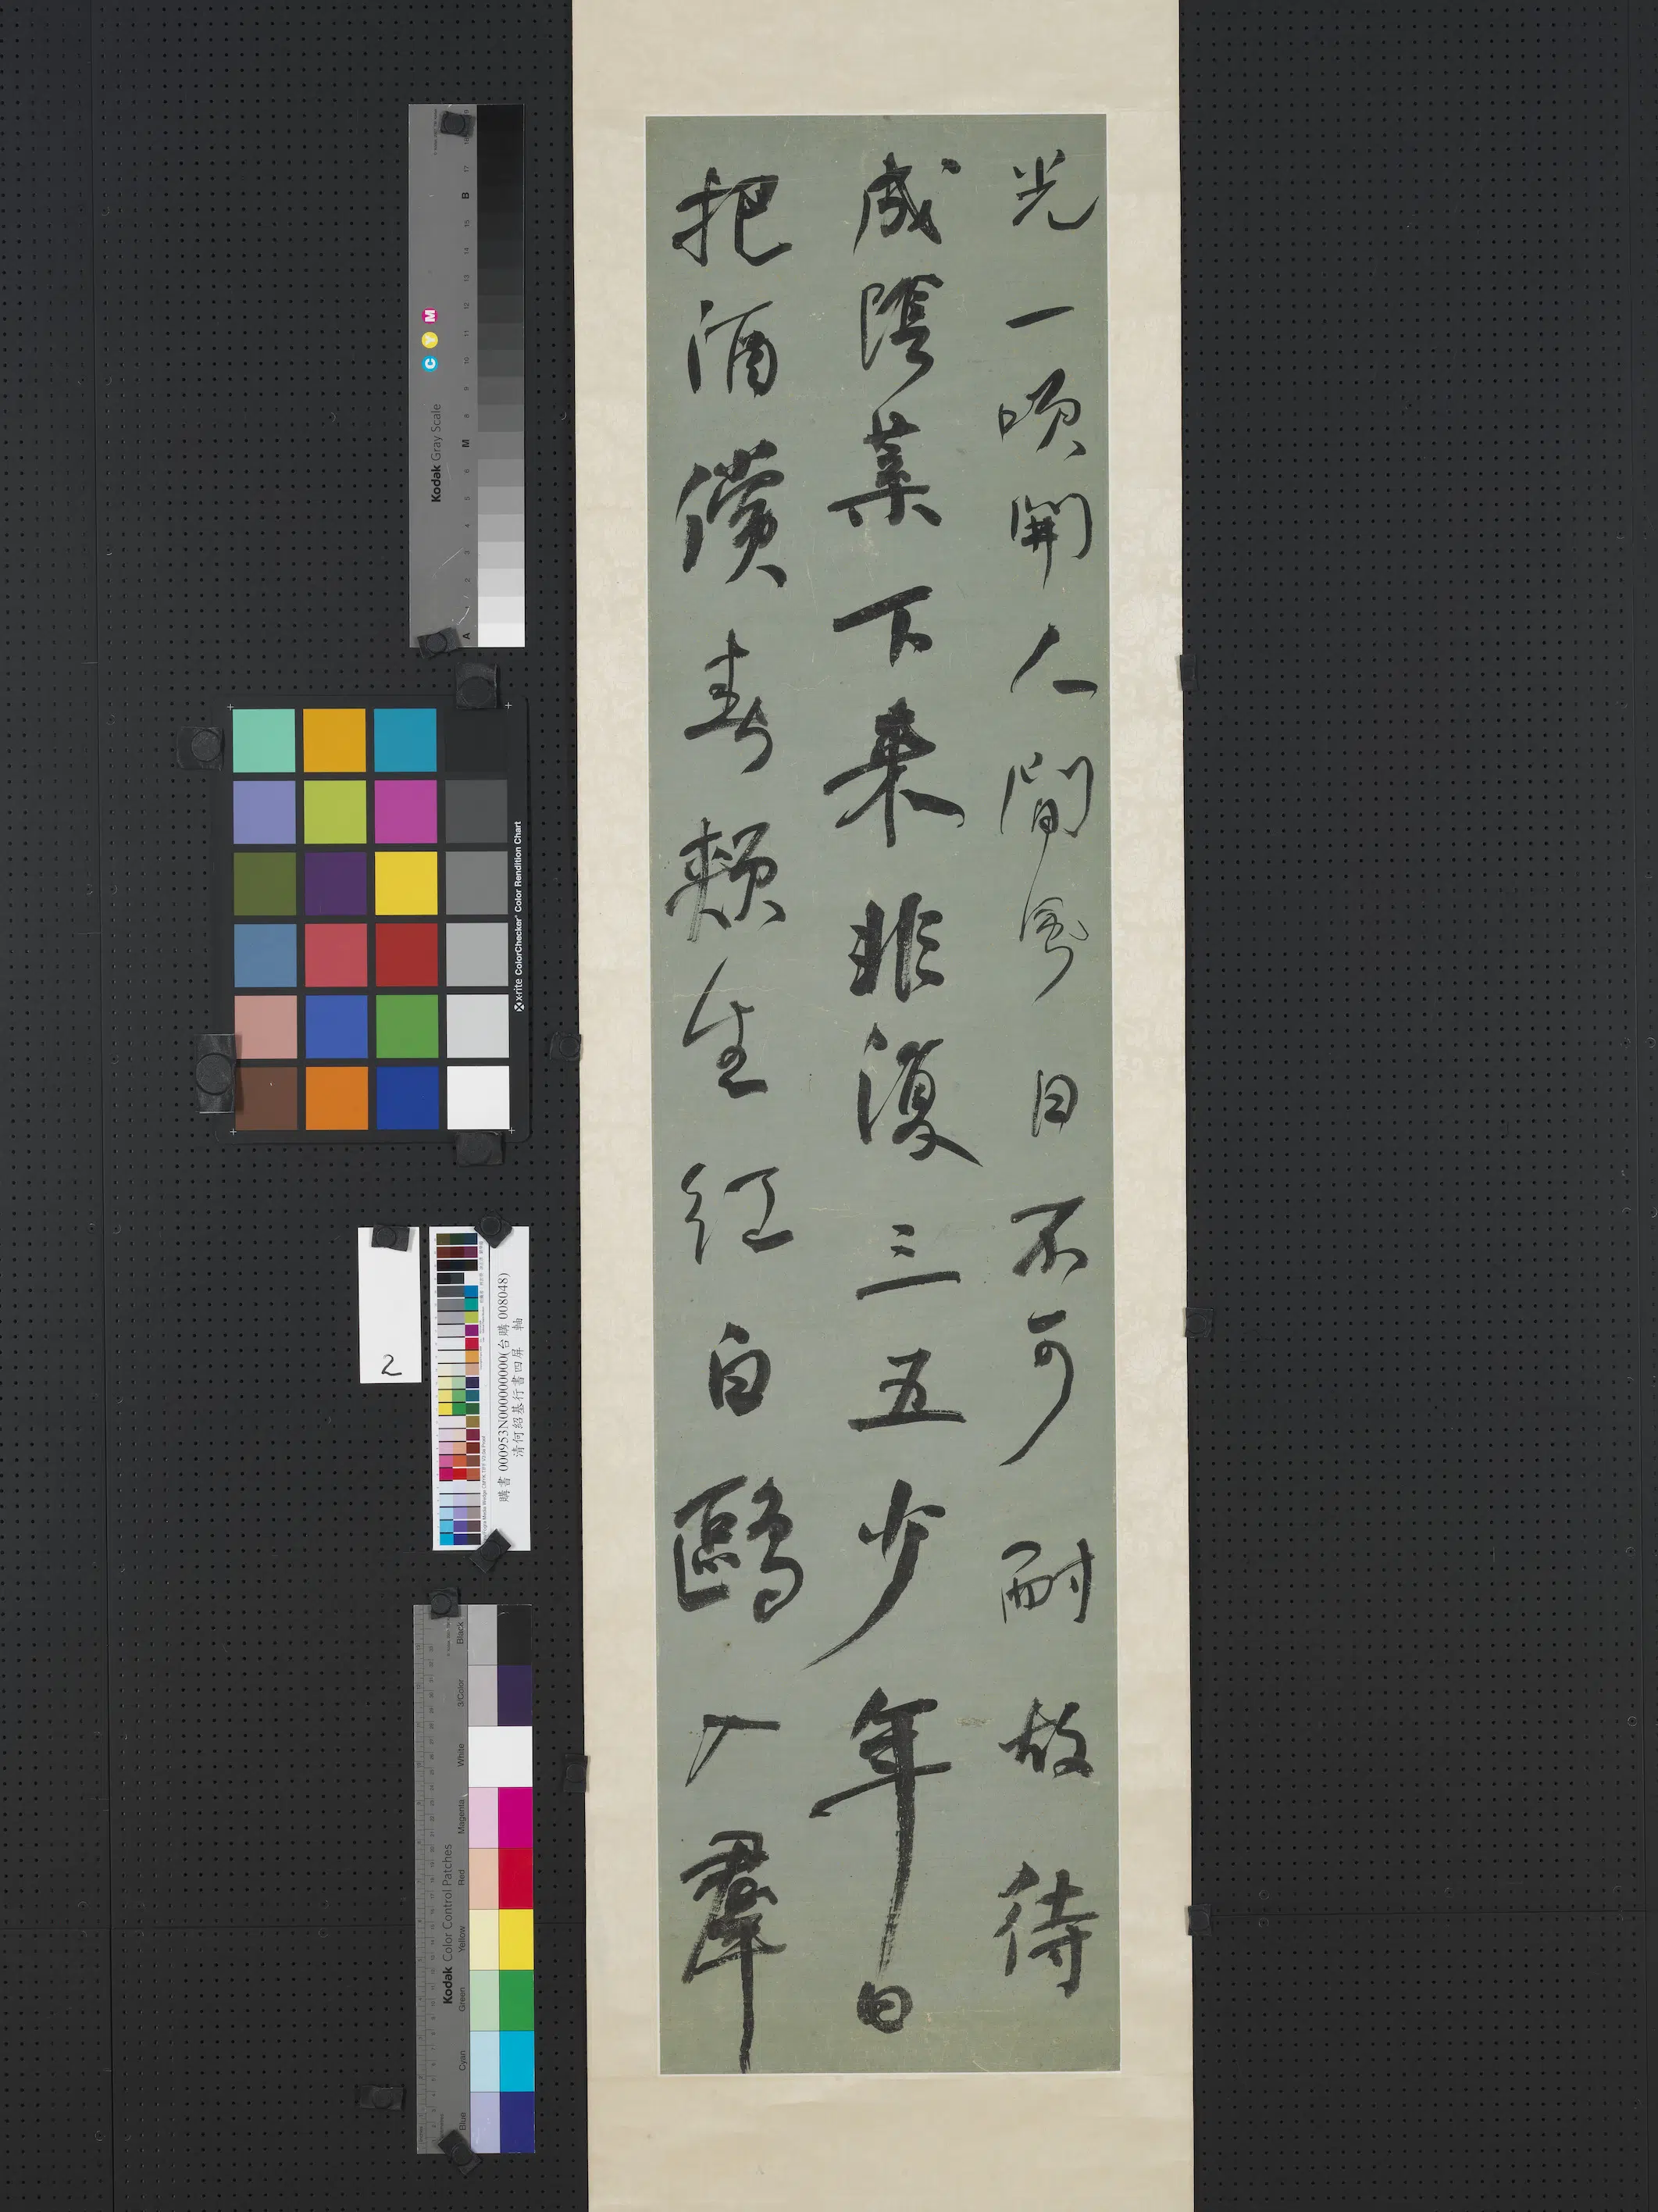 光一咲開人間風日不可耐故待
成陰葉下来非復三五少年日
把酒償春頰生紅白鷗入羣
Kodak Gray Scale
C Y M
x-rite ColorChecker Color Rendition Chart
2
購書 000953N000000000(台購 008048)
清何紹基行書四屏 軸
Kodak Color Control Patches
Blue Cyan Green Yellow Red Magenta White 3/Color Black